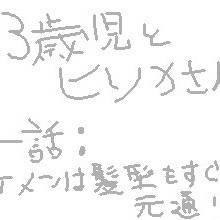 3歳児と
ヒソカさん
一話:
イケメンは髪型もすぐ
元通り